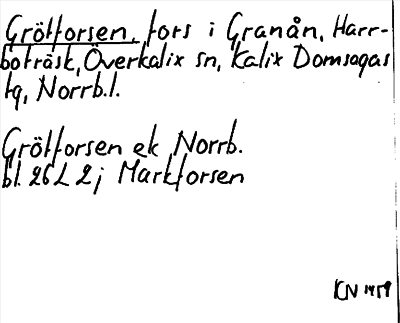 Grötforsen, fors i Granån, Harr-
boträsk, Överkalix sn, Kalix Domsagas
tg, Norrb.l.
Grötforsen ek Norrb.
bl. 26 L 2 j Markforsen
KN 1959